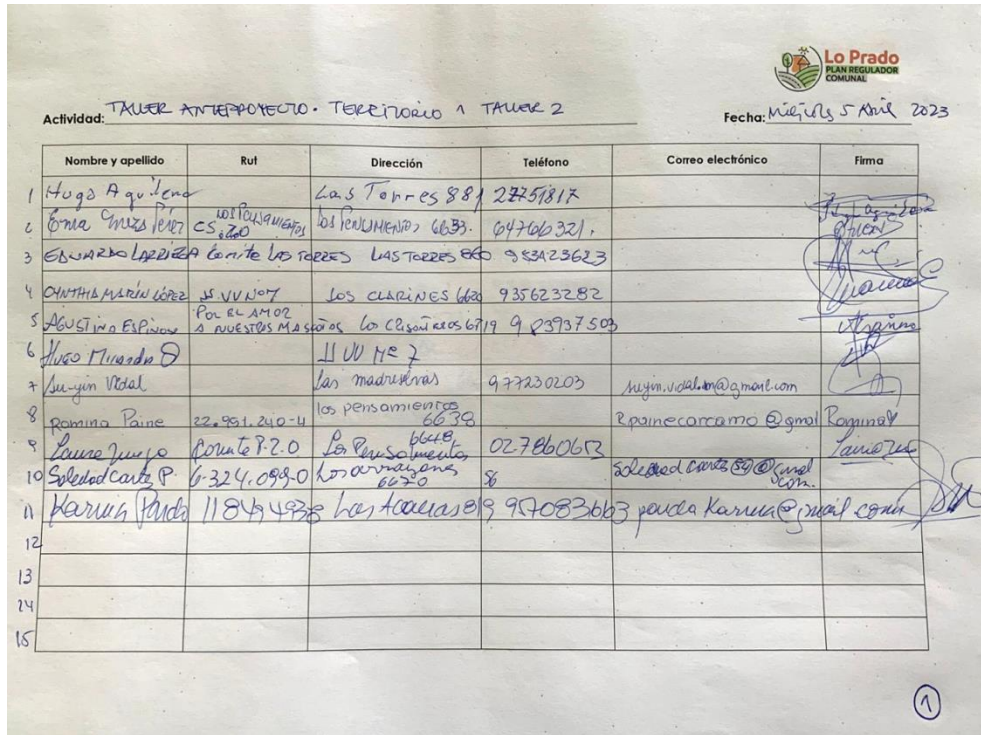 Lo Prado
PLAN REGULADOR
COMUNAL
Actividad: TALLER ANTEPROYECTO. TERRITORIO 1 TALLER 2 Fecha: Miércoles 5 Abril 2023
Nombre y apellido Rut Dirección Teléfono Correo electrónico Firma
1 Hugo Aguilera Las Torres 881 27751817
2 Ema Pérez CS. 720 Los Pensamientos Los Pensamientos 6633. 64766321.
3 EDUARDO LARRIERA Comite LAS TORRES LAS TORRES 860 983423623
4 CYNTHIA MARÍN LÓPEZ JJ.VV Nº7 LOS CLARINES 6620 935623282
5 AGUSTINA ESPINOZA POR EL AMOR A NUESTROS MASCOTAS Los 6719 9 83937503
6 Hugo Miranda JJ VV Nº 7
7 Su-yin Vidal Las madreselvas 977230203 suyin.vidal.m@gmail.com
8 Romina Paine 22.991.240-4 los pensamientos 6638 R.painecarcamo@gmal Romina
9 Laura Comite P.2.0 Los Pensamientos 6648 027860653
10 Soledad P. 6-324.099-0 Los 6670 56 @gmal com.
11 Karina Pardo 118494938 Las Acacias 819 957083663 parda Karina@gmail.com
12
13
24
15
1